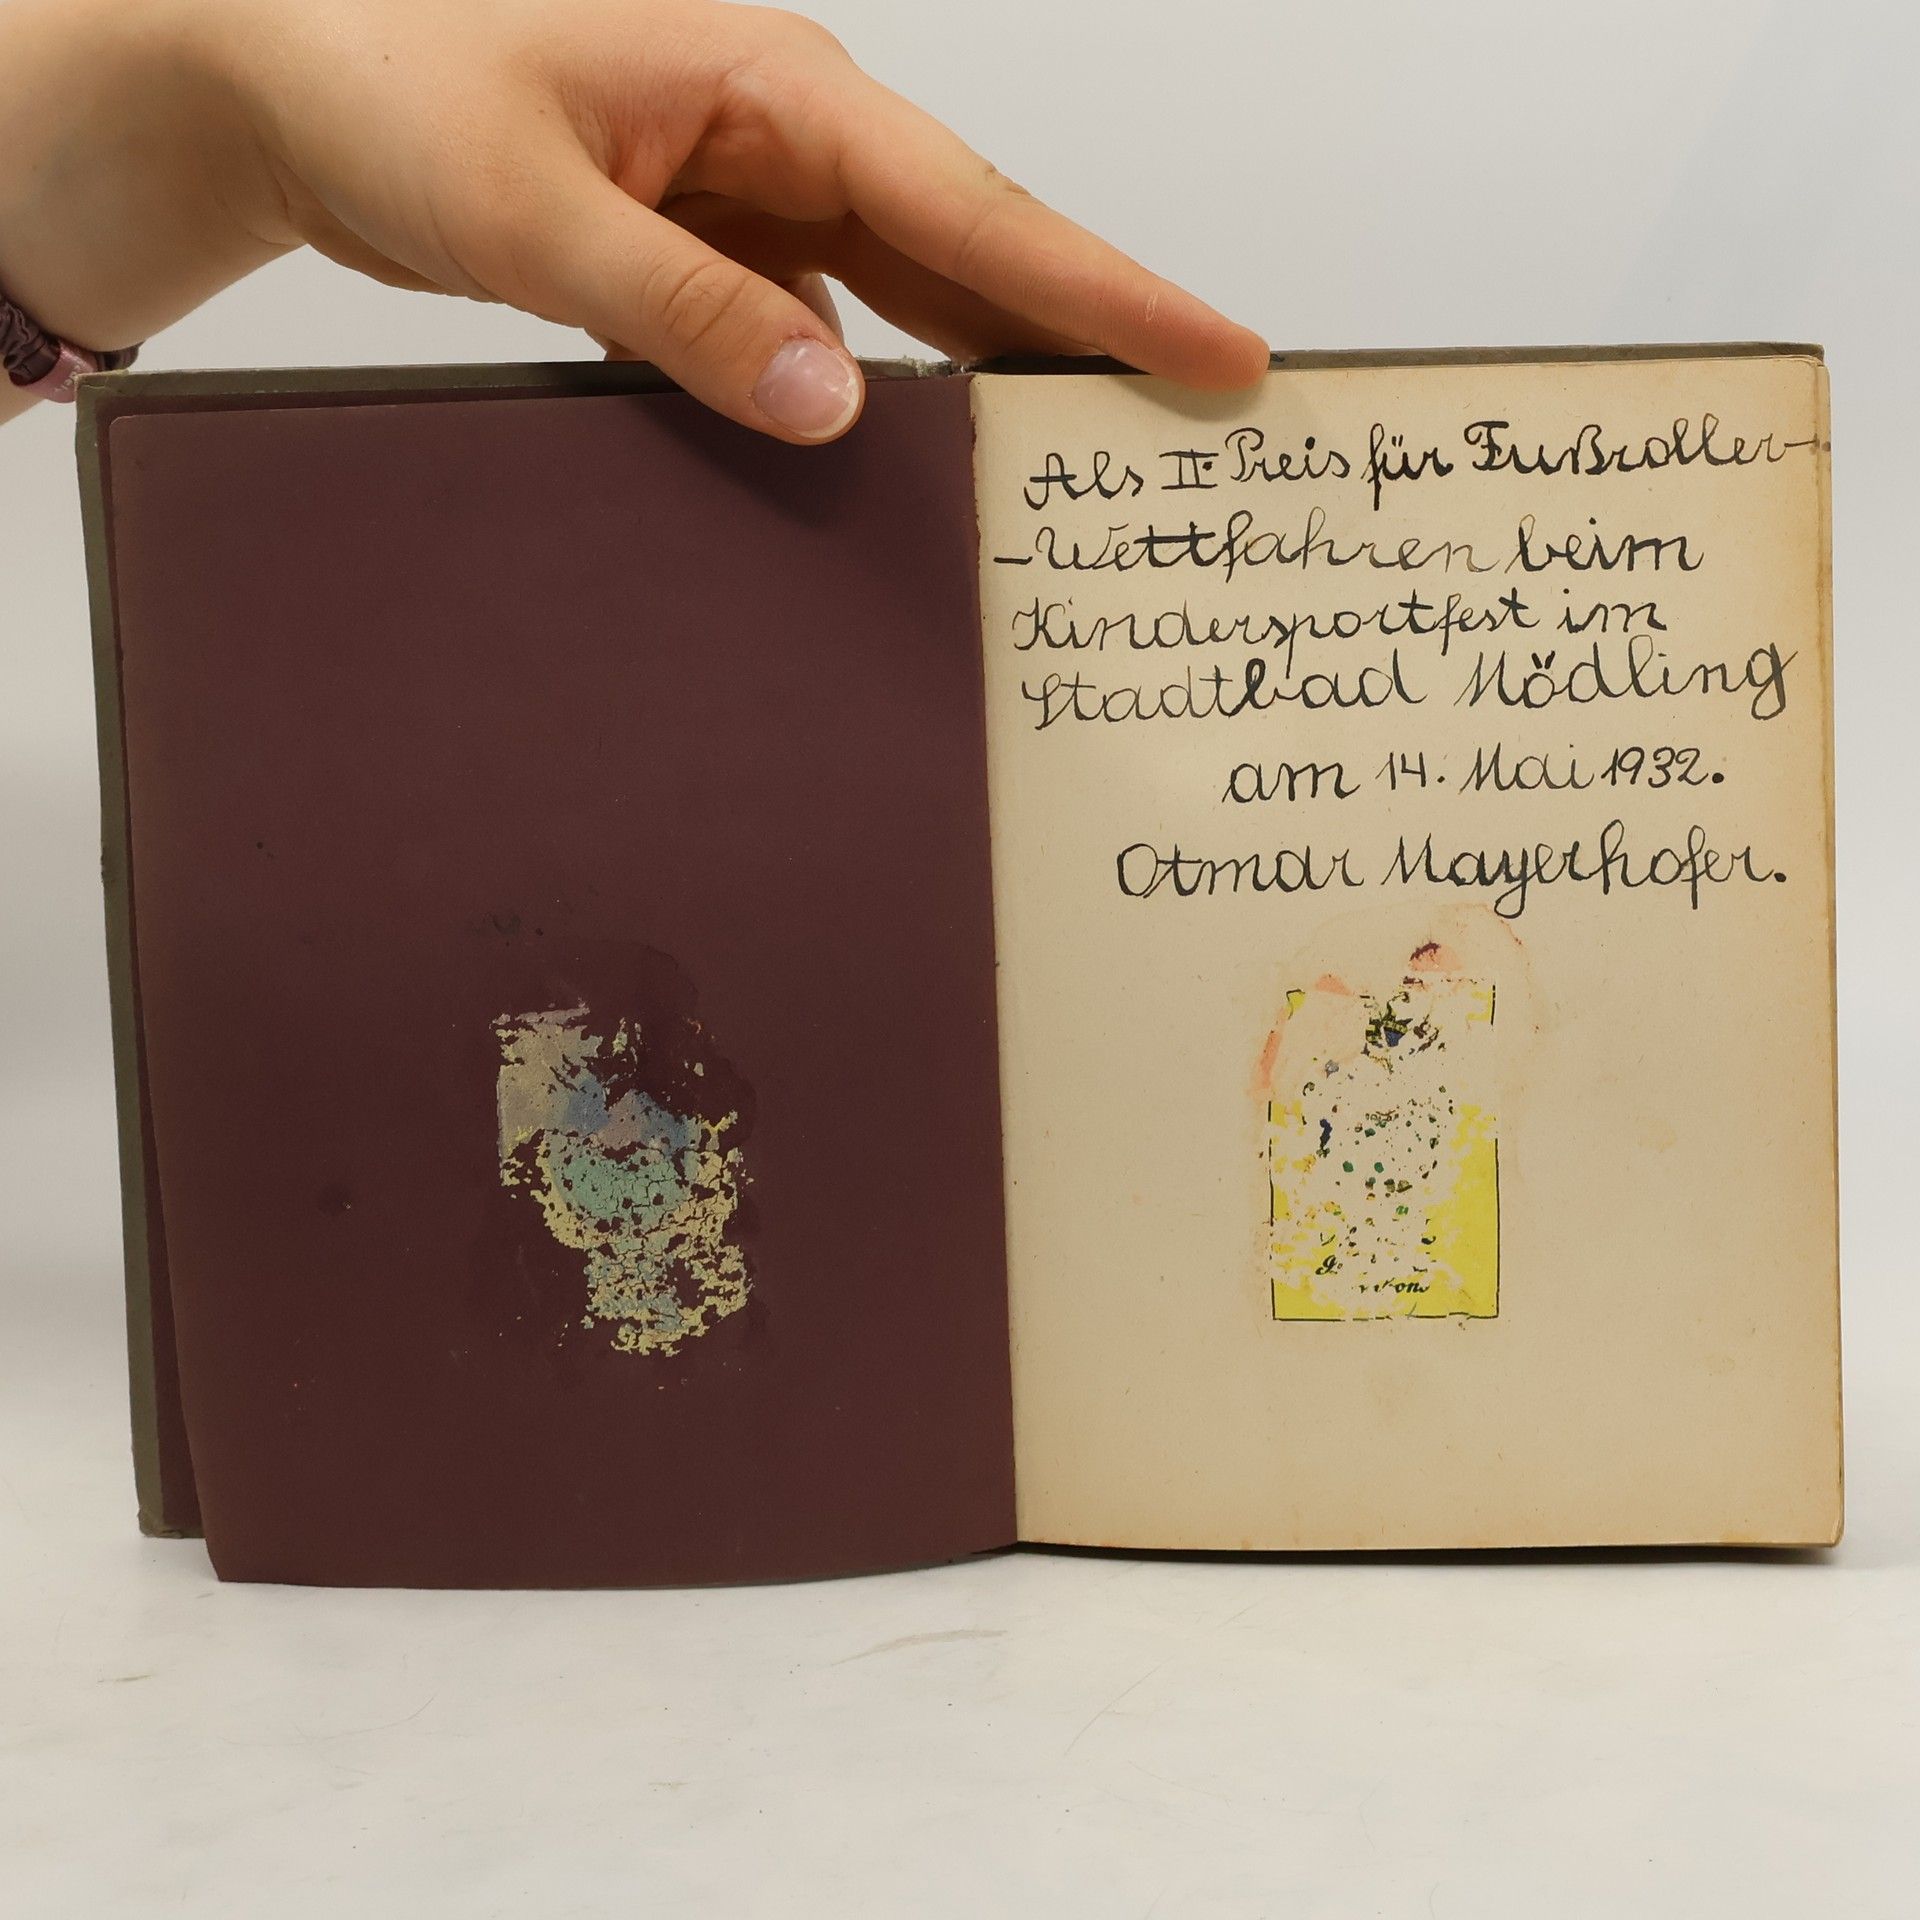 Als II. Preis für Fußroller-
-Wettfahren beim
Kindersportfest im
Stadtbad Mödling
am 14. Mai 1932.
Otmar Mayerhofer.